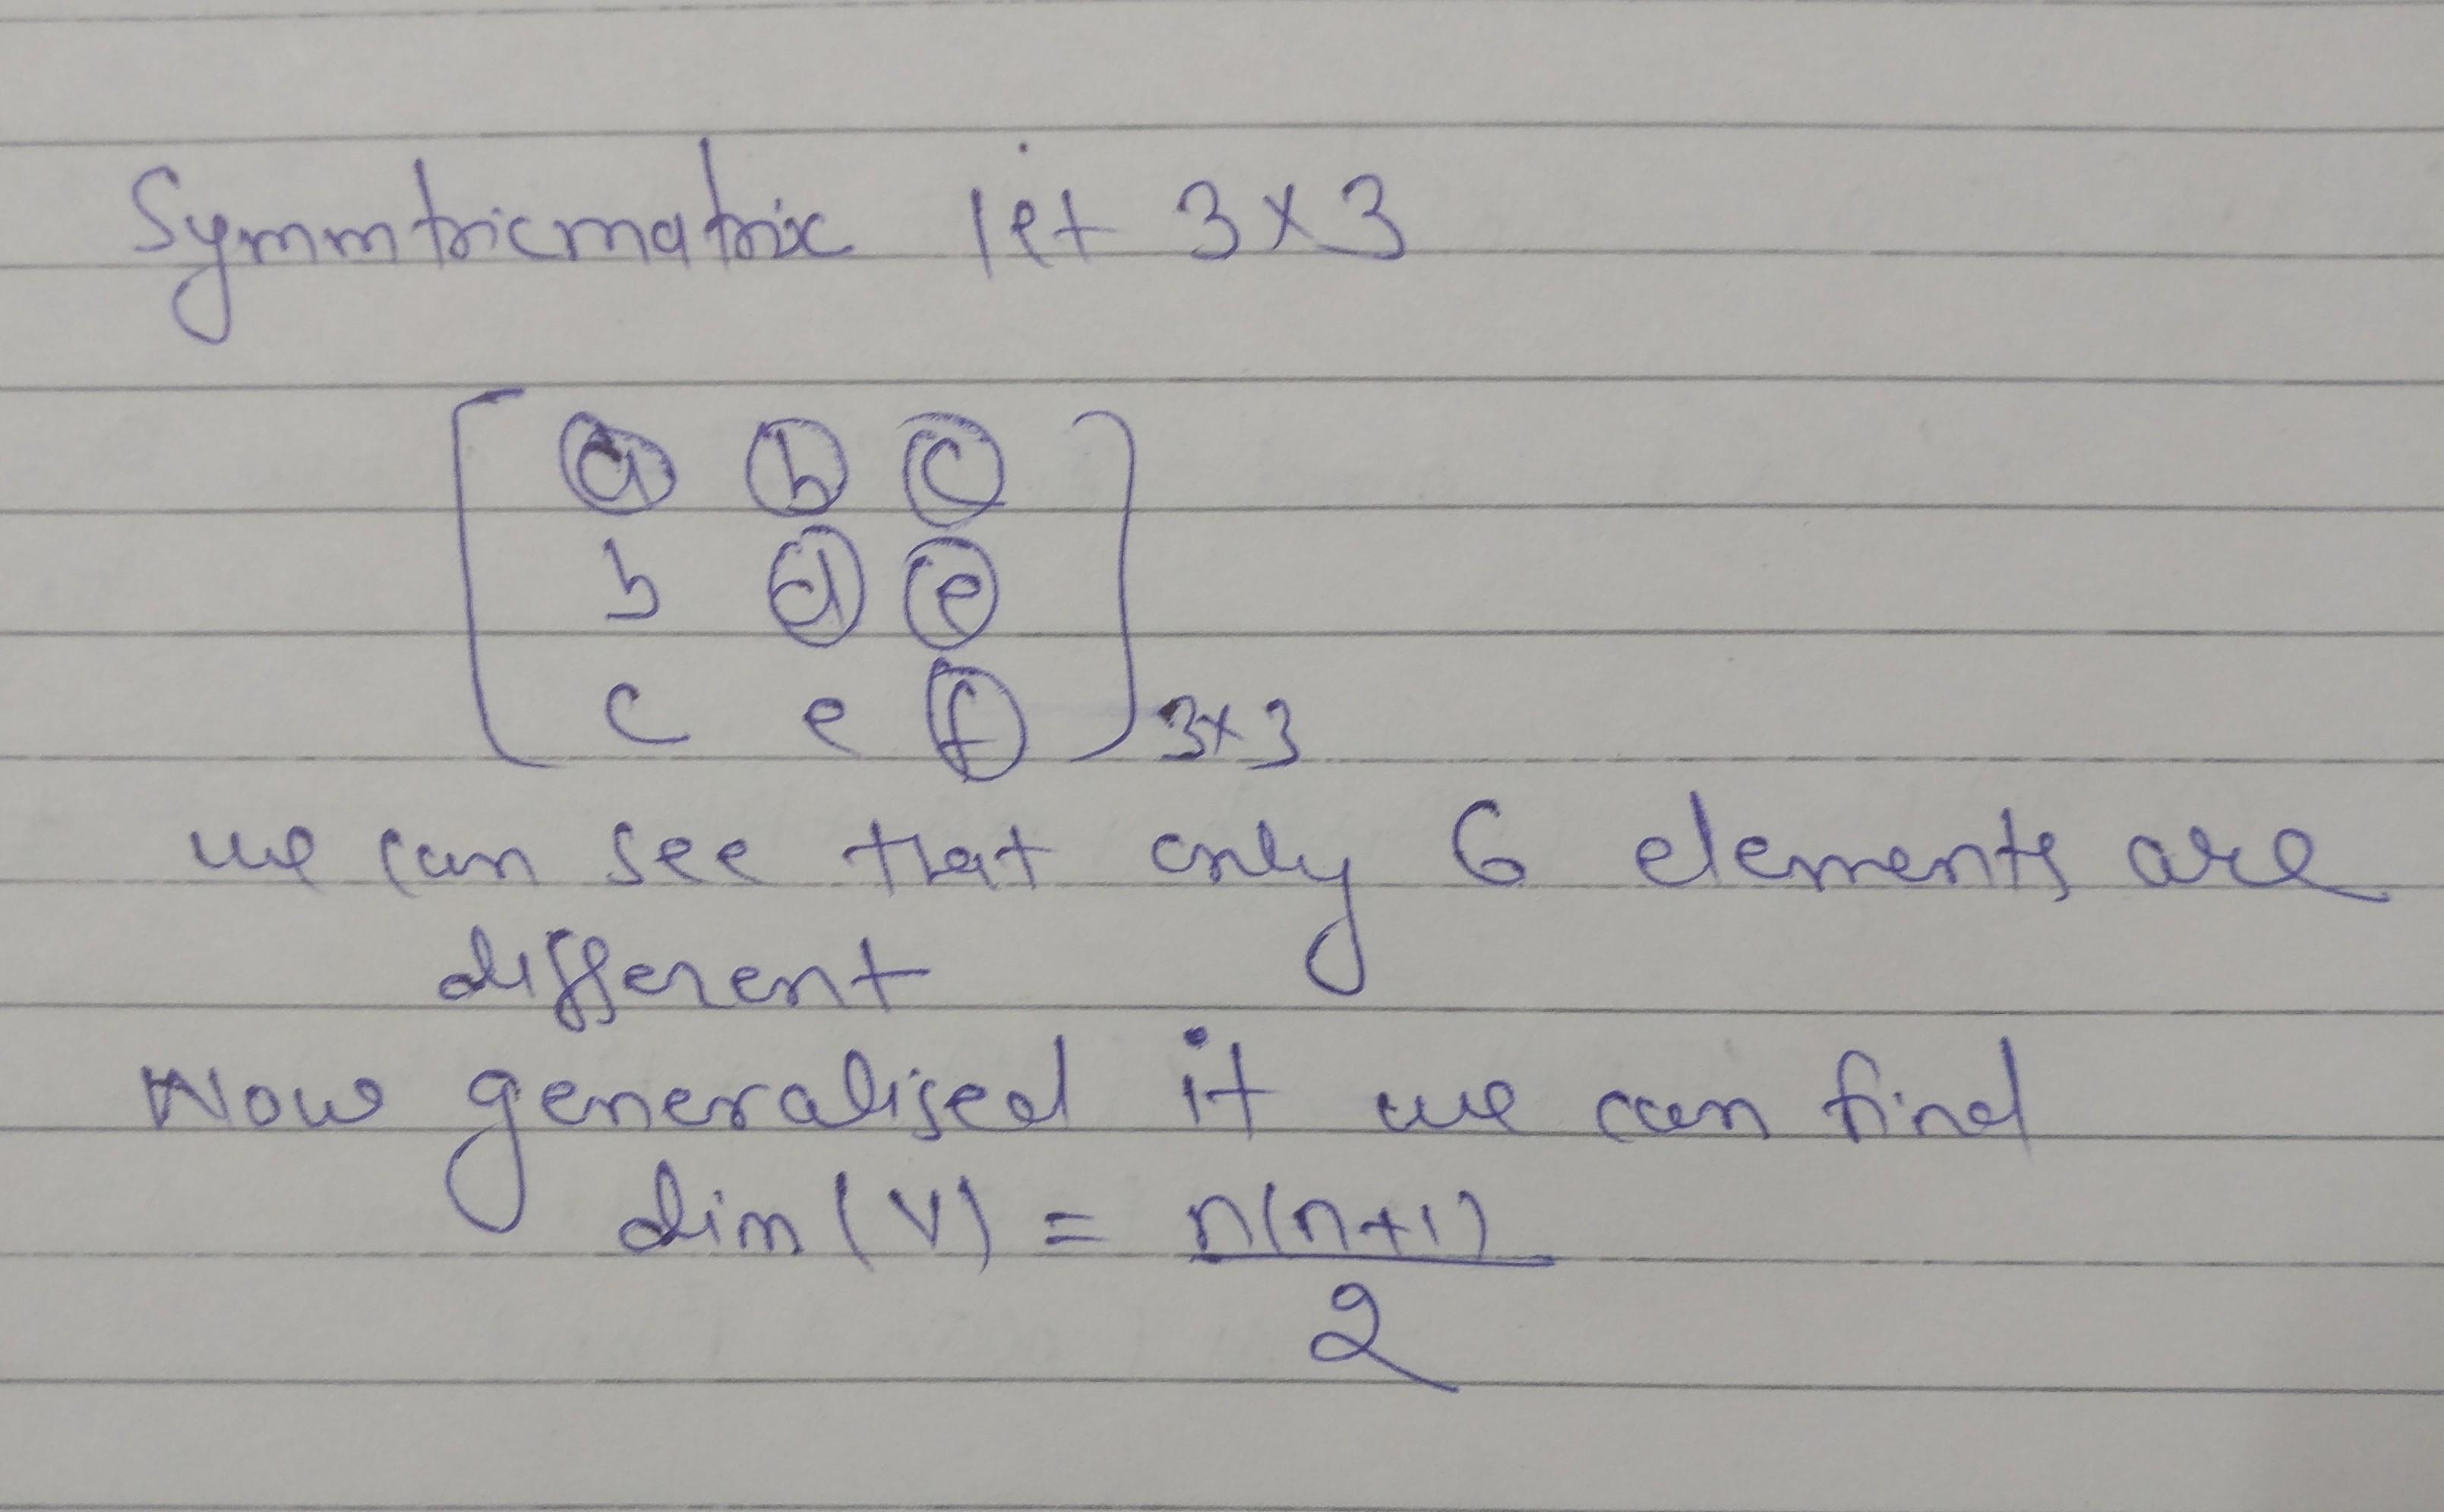 Symmtricmatrix let 3×3
a b c
b d e
c e f
3×3
we can see that only 6 elements are
different
Now generalised it we can find
dim(V) = n(n+1)
2